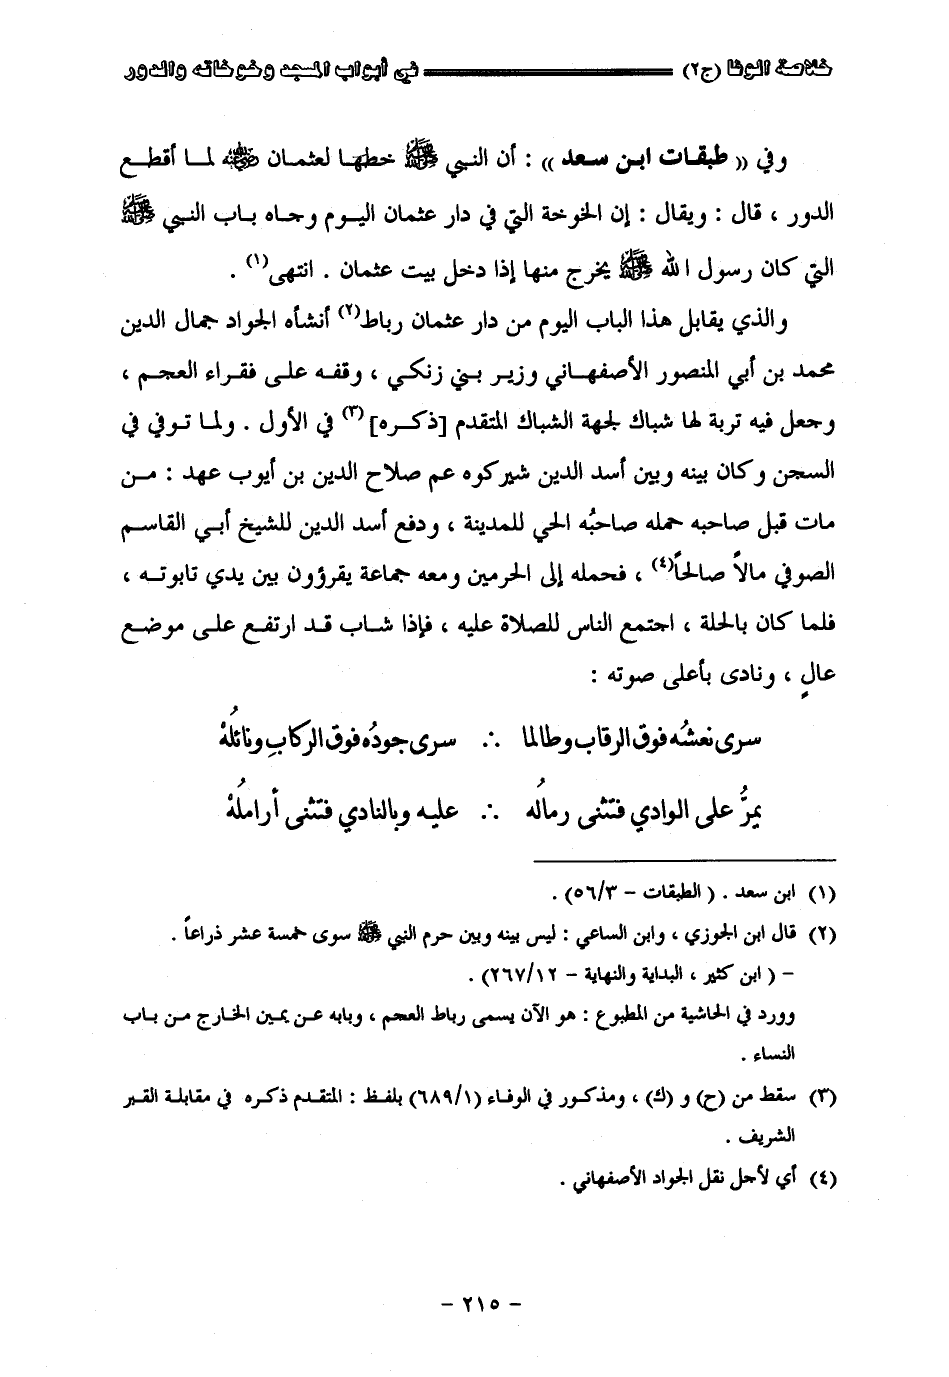 خلاصة الوفا (ج٢) في أبواب المسجد وخوخاته والدور
وفي (( طبقات ابن سعد )) : أن النبي ﷺ خطها لعثمان ﷺ لما أقطع
الدور ، قال : ويقال : إن الخوخة التي في دار عثمان اليوم وجاه باب النبي ﷺ
التي كان رسول الله ﷺ يخرج منها إذا دخل بيت عثمان . انتهى(١) .
والذي يقابل هذا الباب اليوم من دار عثمان رباط(٢) أنشأه الجواد جمال الدين
محمد بن أبي المنصور الأصفهاني وزير بني زنكي ، وقفه على فقراء العجم ،
وجعل فيه تربة لها شباك لجهة الشباك المتقدم [ذكره](٣) في الأول . ولما توفي في
السجن وكان بينه وبين أسد الدين شيركوه عم صلاح الدين بن أيوب عهد : من
مات قبل صاحبه حمله صاحبُه الحي للمدينة ، ودفع أسد الدين للشيخ أبي القاسم
الصوفي مالاً صالحاً(٤) ، فحمله إلى الحرمين ومعه جماعة يقرؤون بين يدي تابوته ،
فلما كان بالحلة ، اجتمع الناس للصلاة عليه ، فإذا شاب قد ارتفع على موضع
عالٍ ، ونادى بأعلى صوته :
سرى نعشُه فوق الرقاب وطالما ∴ سرى جودُه فوق الركابِ ونائلُهْ
يمرُّ على الوادي فتثنى رمالُه ∴ عليه وبالنادي فتثنى أراملُهْ
(١) ابن سعد . ( الطبقات – ٥٦/٣) .
(٢) قال ابن الجوزي ، وابن الساعي : ليس بينه وبين حرم النبي ﷺ سوى خمسة عشر ذراعاً .
– ( ابن كثير ، البداية والنهاية – ٢٦٧/١٢) .
وورد في الحاشية من المطبوع : هو الآن يسمى رباط العجم ، وبابه عن يمين الخارج من باب
النساء .
(٣) سقط من (ح) و (ك) ، ومذكور في الوفاء (٦٨٩/١) بلفظ : المتقدم ذكره في مقابلة القبر
الشريف .
(٤) أي لأجل نقل الجواد الأصفهاني .
– ٢١٥ –